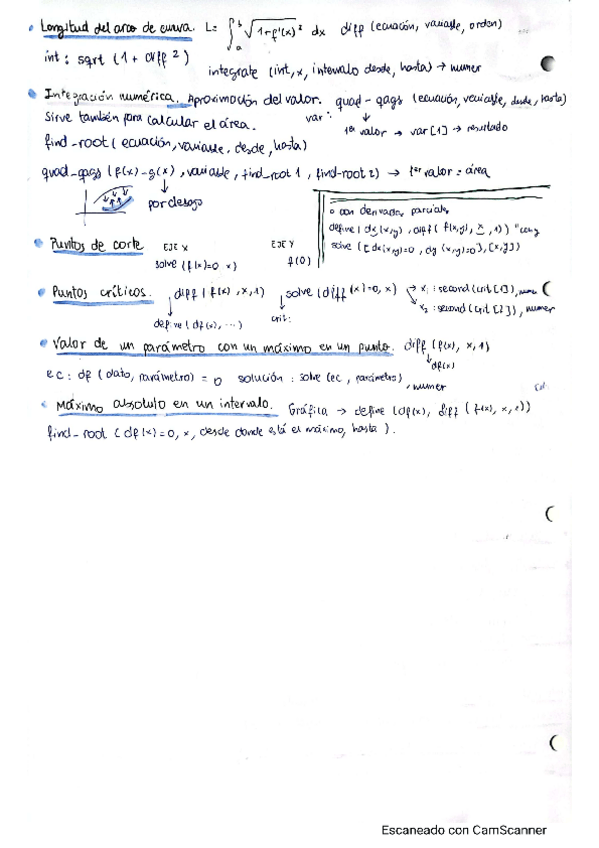 • Longitud del arco de curva. L = ∫_a^b √(1+f'(x)² dx diff (ecuación, variable, orden)
int : sqrt (1 + diff ²)
integrate (int, x, intervalo desde, hasta) → numer
• Integración numérica. Aproximación del valor. quad-qags (ecuación, variable, desde, hasta)
Sirve también para calcular el área. var: ↓
1er valor → var [1] → resultado
find-root (ecuación, variable, desde, hasta)
quad-qags (f(x)-g(x), variable, find_root 1, find-root 2) → 1er valor = área
↓
por debajo
o con derivadas parciales
define (dx(x,y), diff( f(x,y), x, 1))
solve ([dx(x,y)=0, dy (x,y)=0], [x,y])
• Puntos de corte EJE X EJE Y
solve (f(x)=0 x) f(0)
• Puntos críticos. diff (f(x), x, 1) solve (diff (x)=0, x) → x₁ : second (crit [1]), numer
↓ define (df(x), ...) ↓ crit: x₂ : second (crit [2]), numer
• Valor de un parámetro con un máximo en un punto. diff (f(x), x, 1)
↓ df(x)
ec : df (dato, parámetro) = 0 solución : solve (ec, parámetro), numer
• Máximo absoluto en un intervalo. Gráfica → define (df(x), diff (f(x), x, 1))
find-root (df(x)=0, x, desde donde está el máximo, hasta).
Escaneado con CamScanner